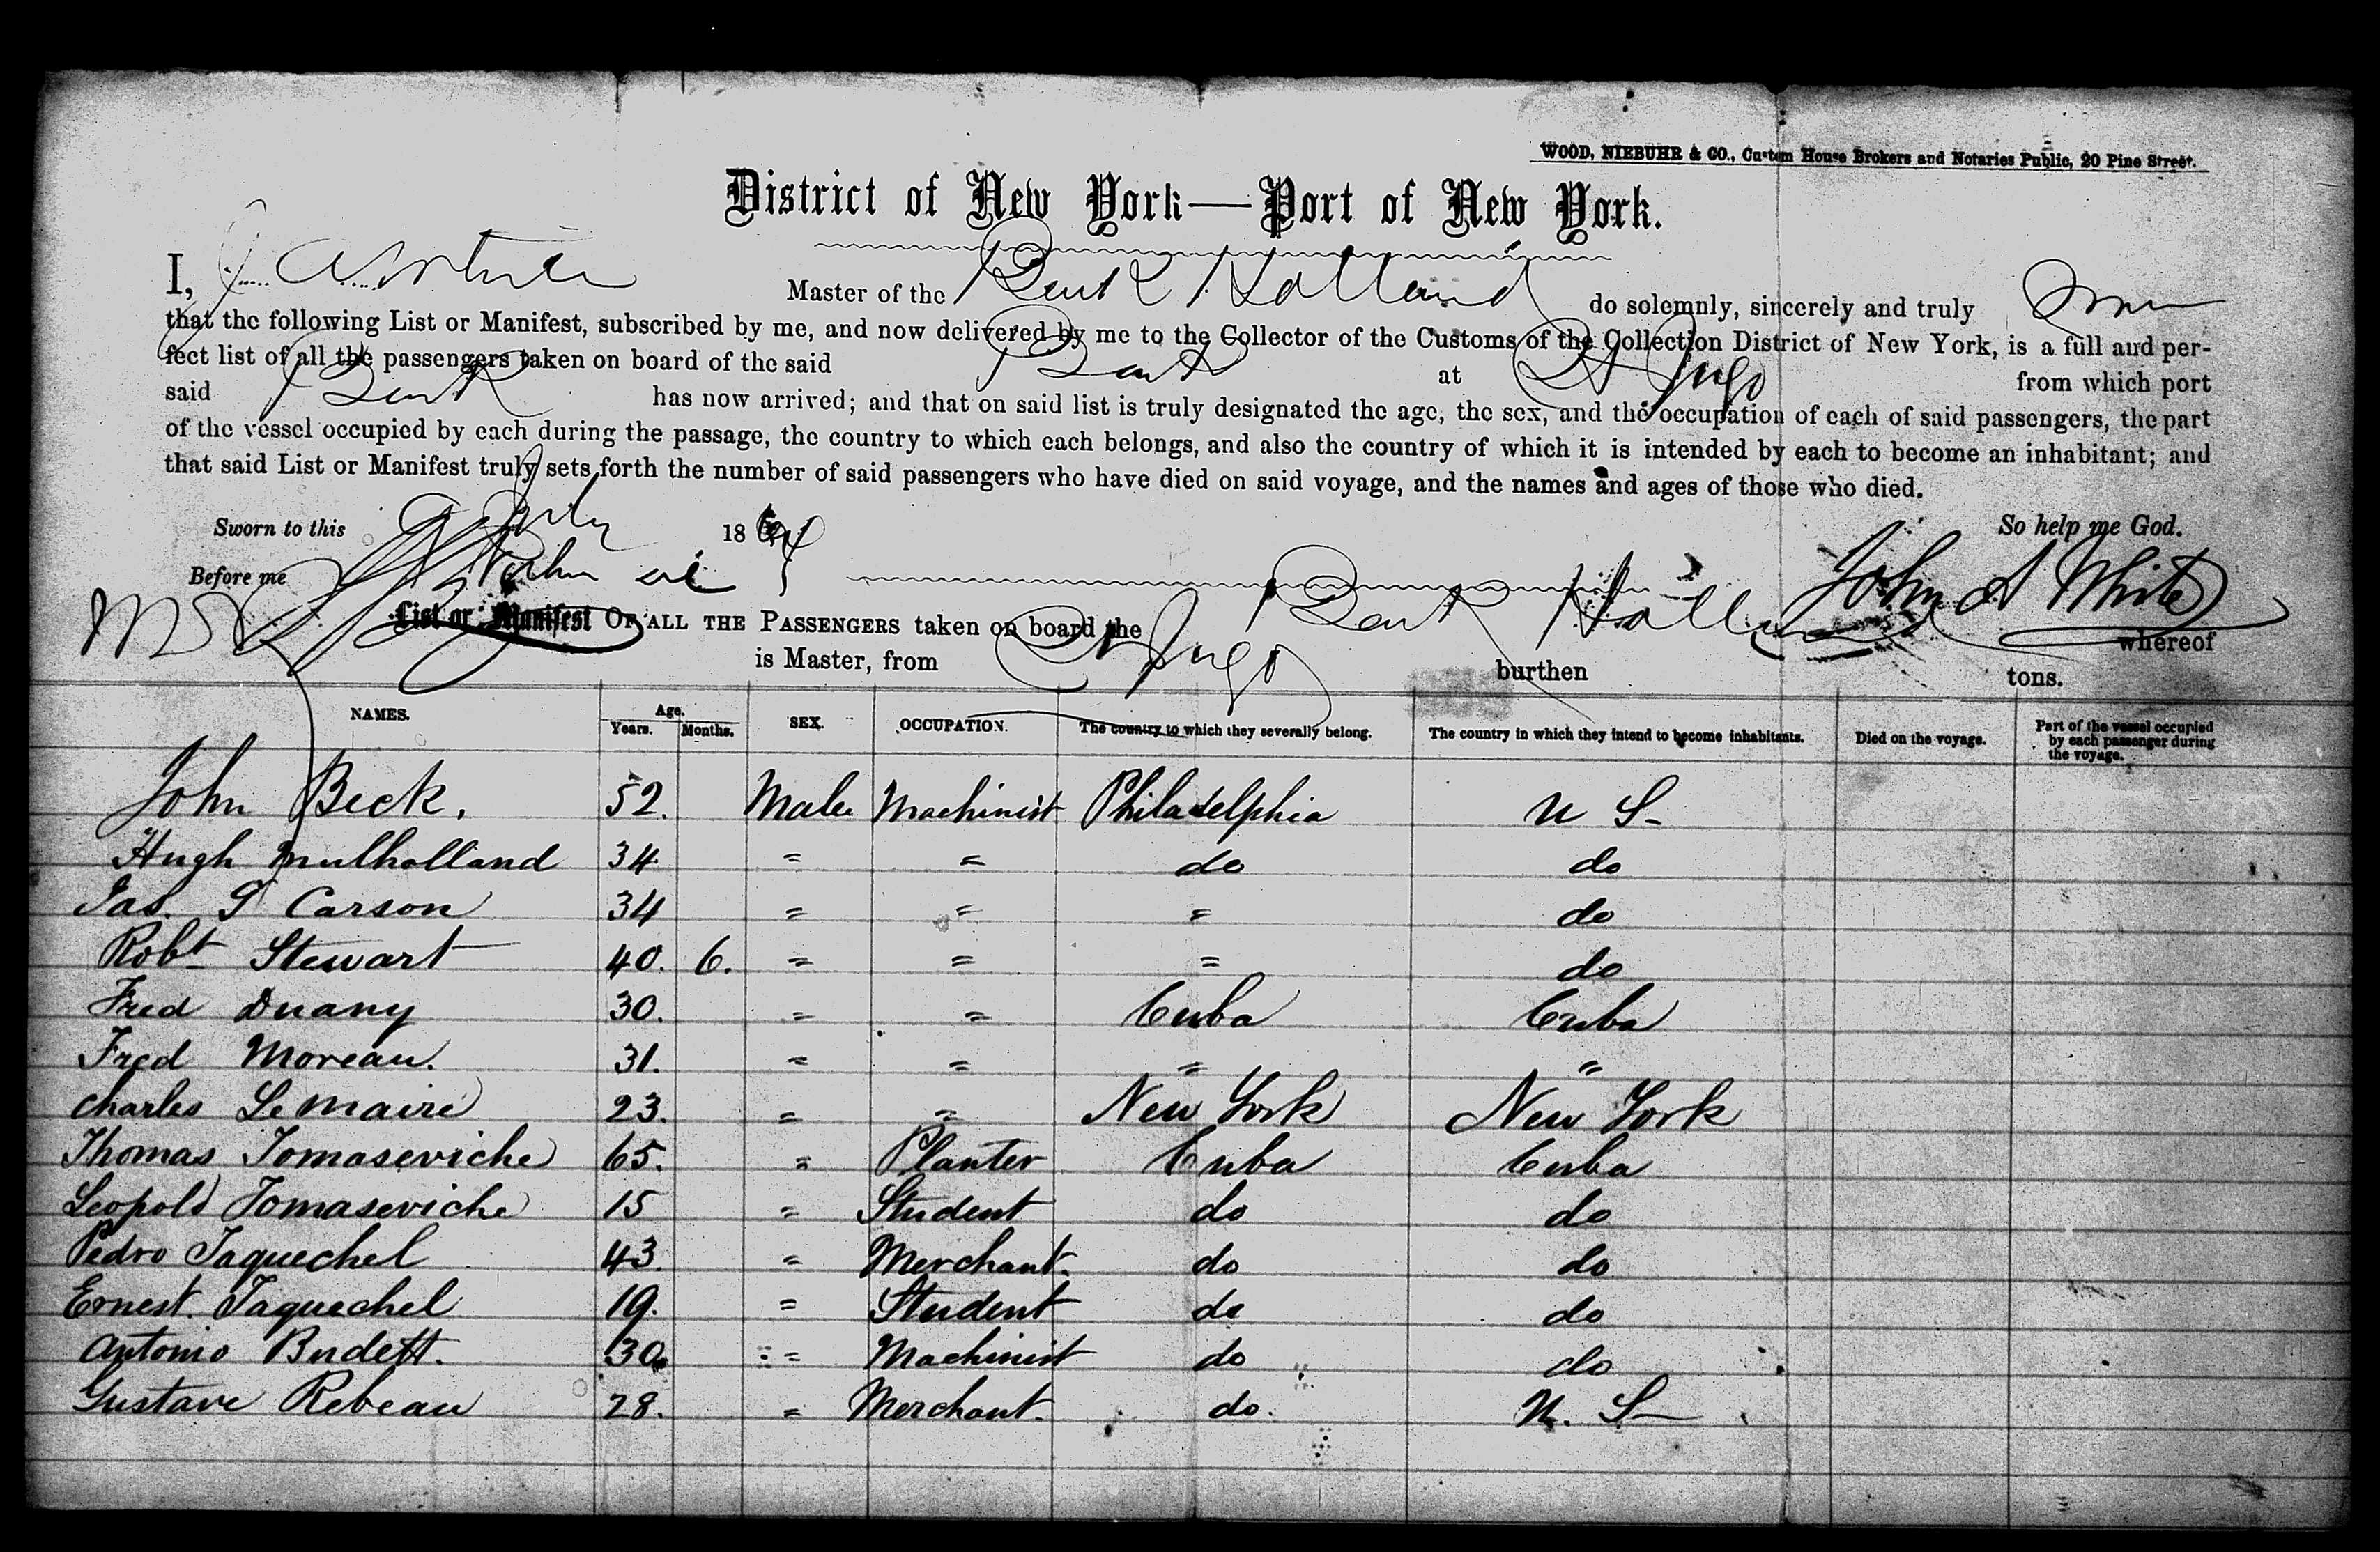 WOOD, NIEBUHR & CO., Custom House Brokers and Notaries Public, 20 Pine Street.
District of New York—Port of New York.
I, J A White Master of the Bark Holland do solemnly, sincerely and truly swear
that the following List or Manifest, subscribed by me, and now delivered by me to the Collector of the Customs of the Collection District of New York, is a full and per-
fect list of all the passengers taken on board of the said Bark at St Jago from which port
said Bark has now arrived; and that on said list is truly designated the age, the sex, and the occupation of each of said passengers, the part
of the vessel occupied by each during the passage, the country to which each belongs, and also the country of which it is intended by each to become an inhabitant; and
that said List or Manifest truly sets forth the number of said passengers who have died on said voyage, and the names and ages of those who died.
Sworn to this July 18 So help me God.
Before me John A White
List or Manifest OF ALL THE PASSENGERS taken on board the Bark Holland whereof
is Master, from St Jago burthen tons.
NAMES. Age. Years. Months. SEX. OCCUPATION. The country to which they severally belong. The country in which they intend to become inhabitants. Died on the voyage. Part of the vessel occupied by each passenger during the voyage.
John Beck. 52. Male Machinist Philadelphia U S-
Hugh Mulholland 34 = = do do
Jas. G Carson 34 = = = do
Robt Stewart 40. 6. = = = do
Fred Duany 30. = = Cuba Cuba
Fred Moreau. 31. = = = =
Charles Lemaire 23. = = New York New York
Thomas Tomaseviche 65. = Planter Cuba Cuba
Leopold Tomaseviche 15 = Student do do
Pedro Taquechel 43. = Merchant. do do
Ernest Taquechel 19. = Student do do
Antonio Budett. 30. = Machinist do do
Gustave Rebeau 28. = Merchant. do. U. S-